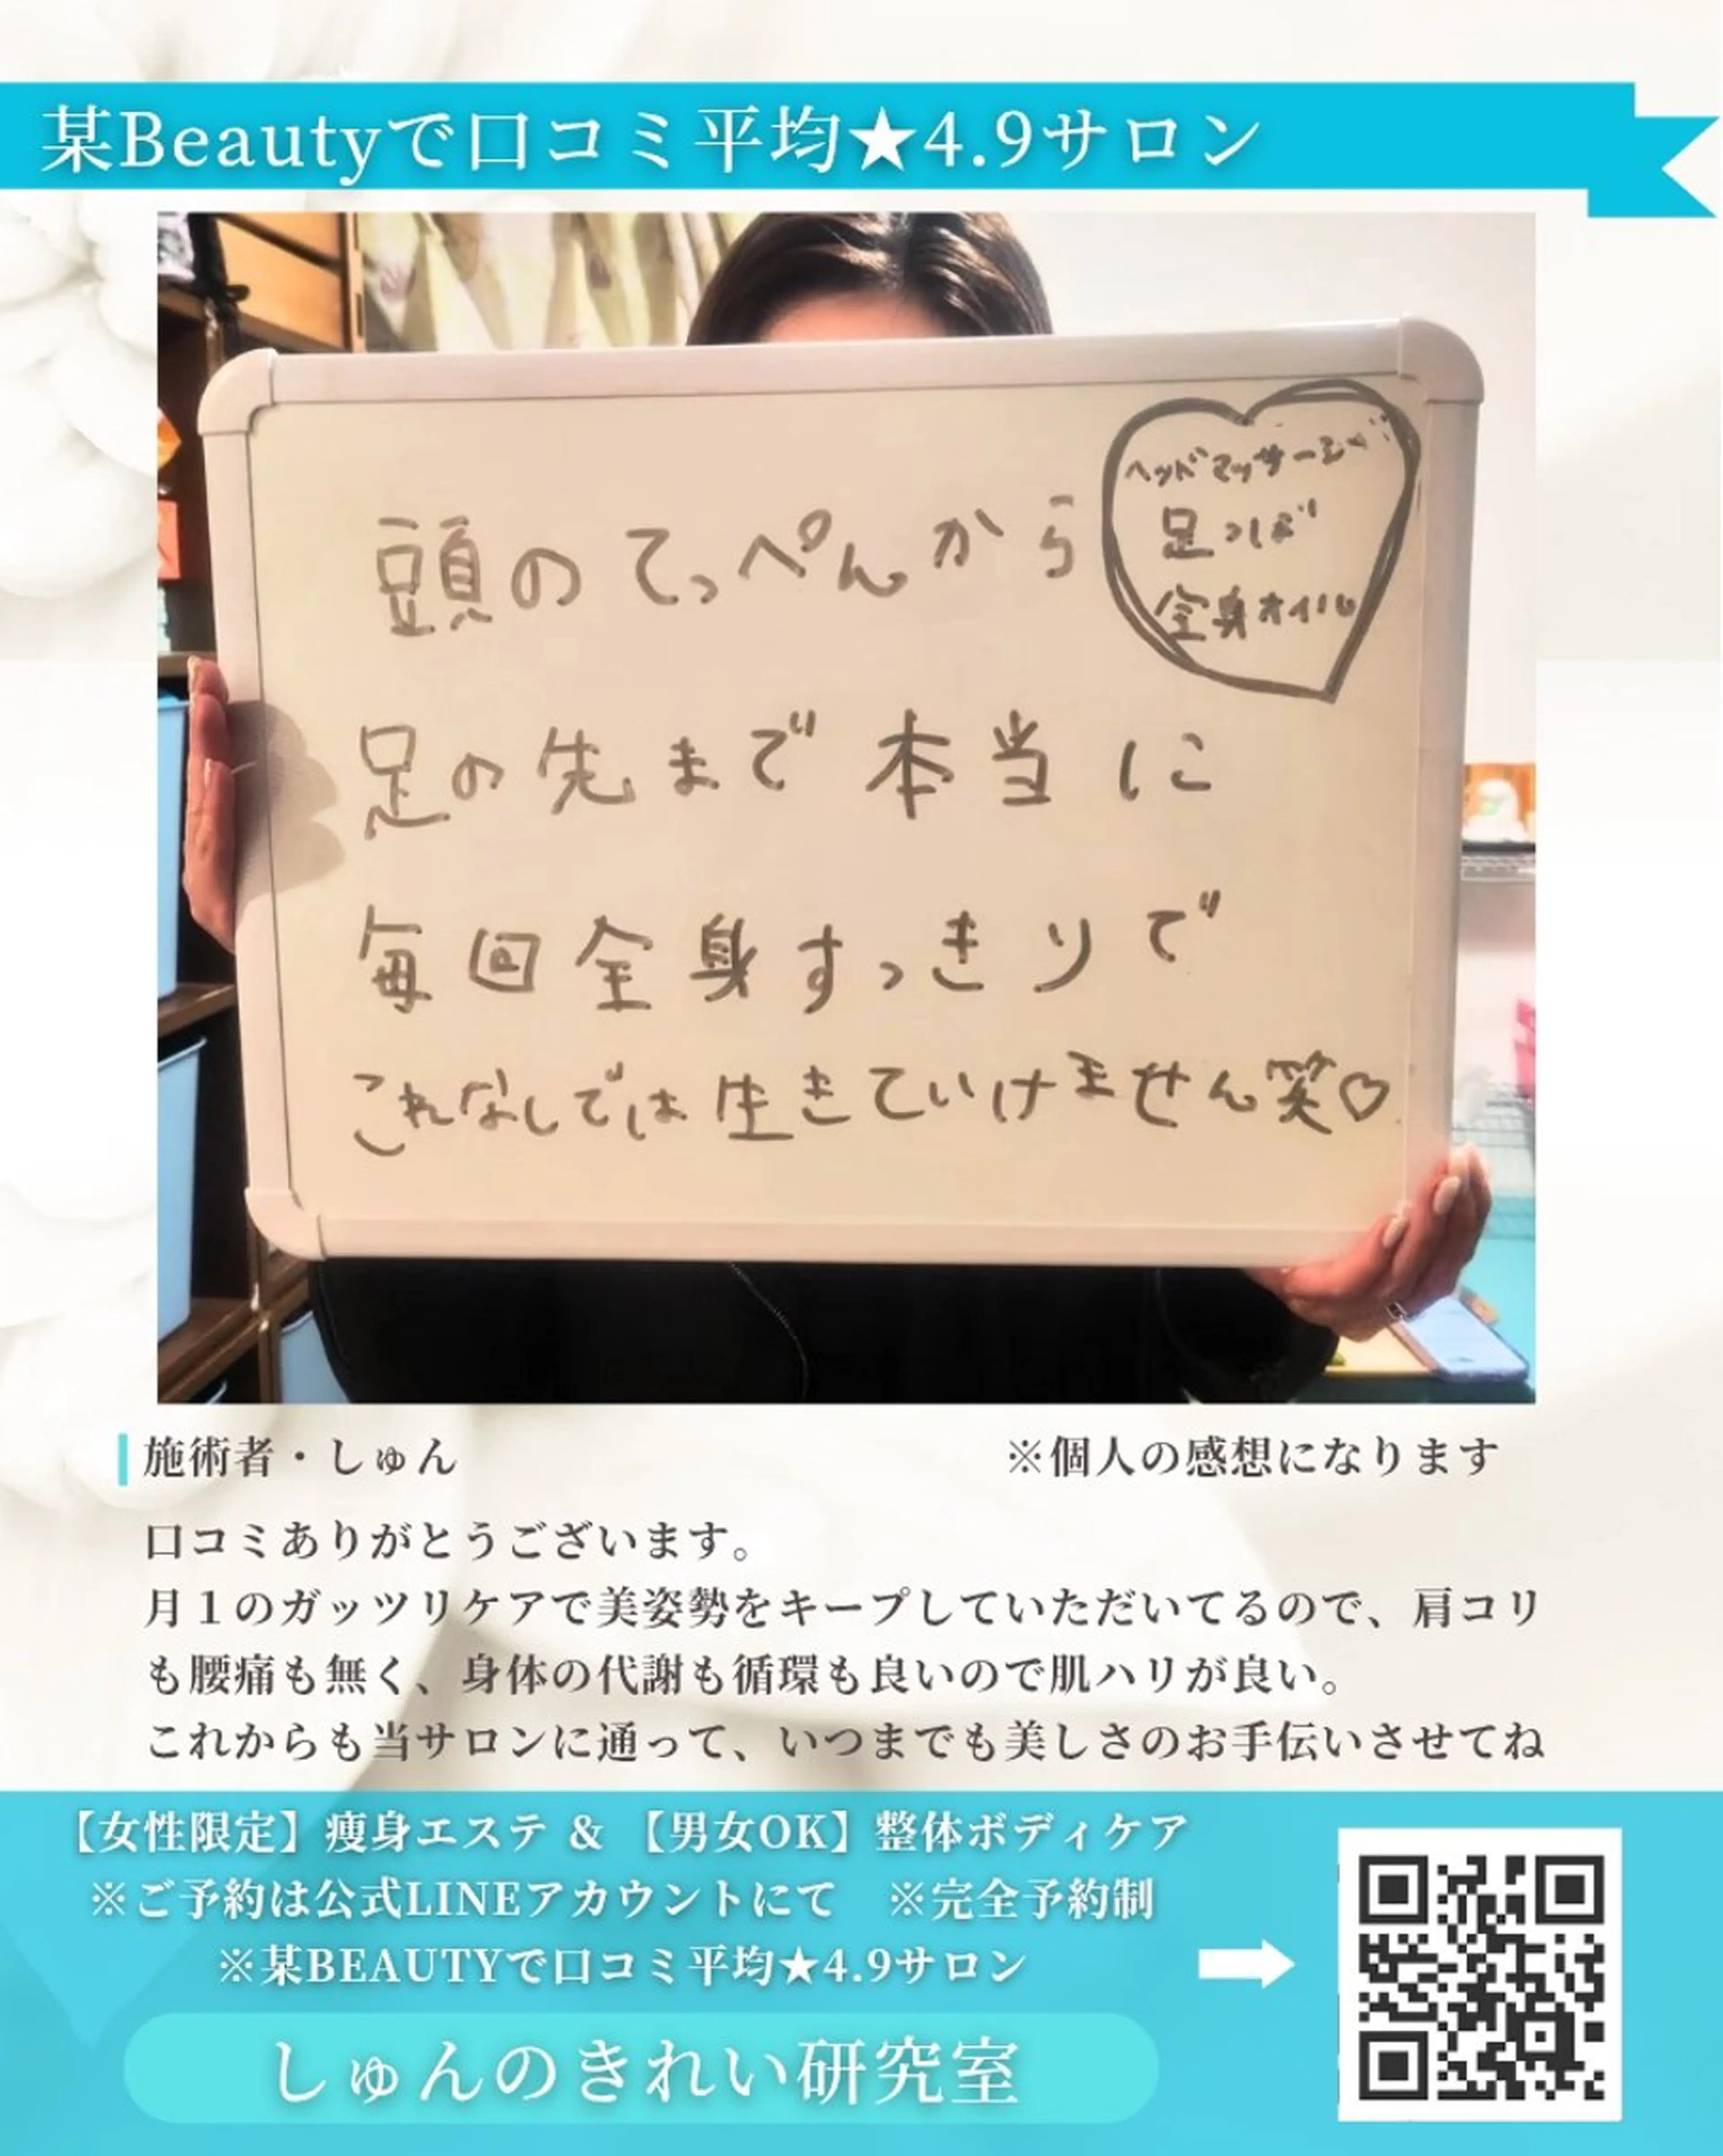 某Beautyで口コミ平均★4.9サロン
頭のてっぺんから
ヘッドマッサージ
足つぼ
全身オイル
足の先まで本当に
毎回全身すっきりで
これなしでは生きていけません笑♡
施術者・しゅん
※個人の感想になります
口コミありがとうございます。
月１のガッツリケアで美姿勢をキープしていただいてるので、肩コリ
も腰痛も無く、身体の代謝も循環も良いので肌ハリが良い。
これからも当サロンに通って、いつまでも美しさのお手伝いさせてね
【女性限定】痩身エステ &【男女OK】整体ボディケア
※ご予約は公式LINEアカウントにて　※完全予約制
※某BEAUTYで口コミ平均★4.9サロン
しゅんのきれい研究室